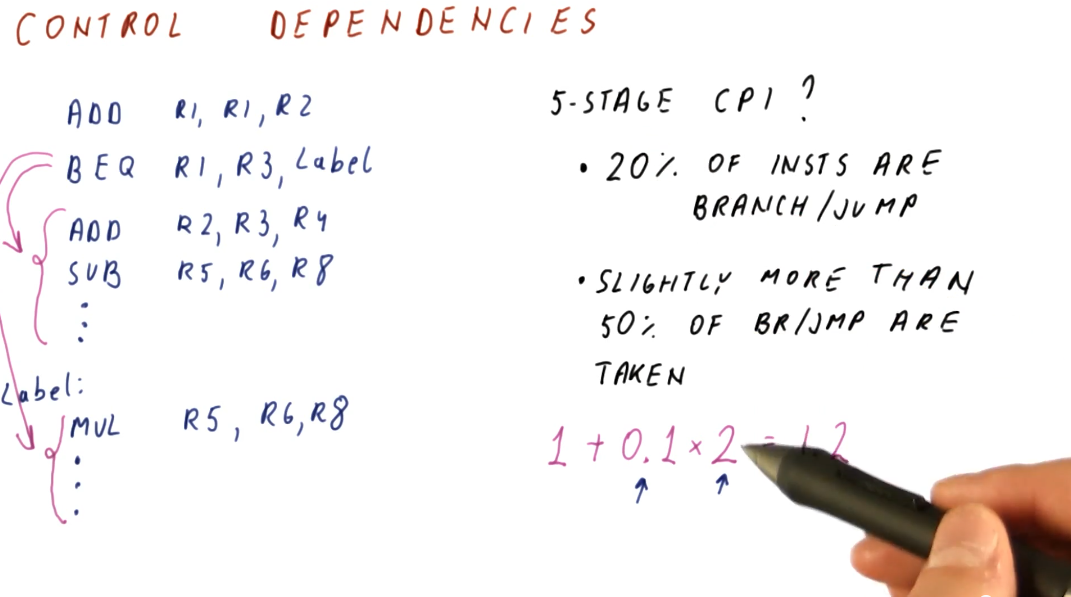 CONTROL DEPENDENCIES
ADD R1, R1, R2
BEQ R1, R3, Label
ADD R2, R3, R4
SUB R5, R6, R8
Label:
MUL R5, R6, R8
5-STAGE CPI?
• 20% OF INSTS ARE
BRANCH/JUMP
• SLIGHTLY MORE THAN
50% OF BR/JMP ARE
TAKEN
1 + 0.1 × 2 = 1.2